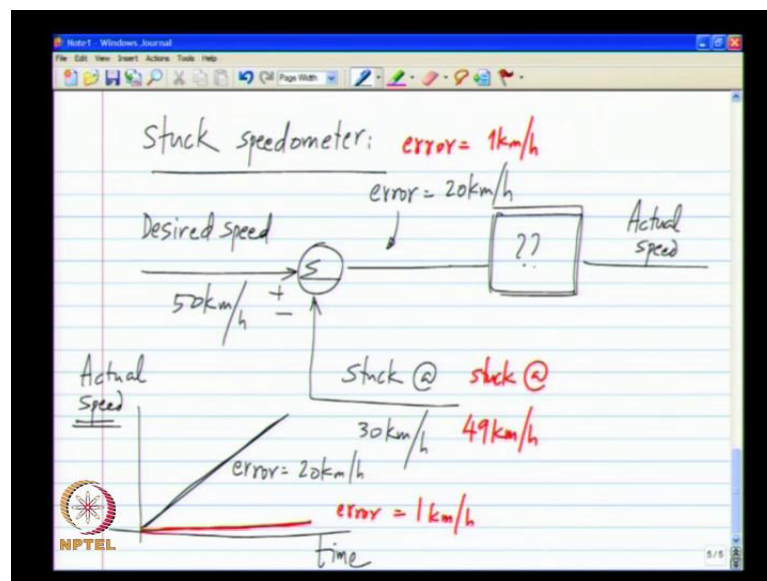 Note1 - Windows Journal
File Edit View Insert Actions Tools Help
Page Width
Stuck speedometer: error = 1km/h
error = 20km/h
Desired speed
Actual
speed
Σ
??
50km/h
+
-
Actual
speed
Stuck @ stuck @
30km/h 49km/h
error = 20km/h
error = 1km/h
time
NPTEL
5/5